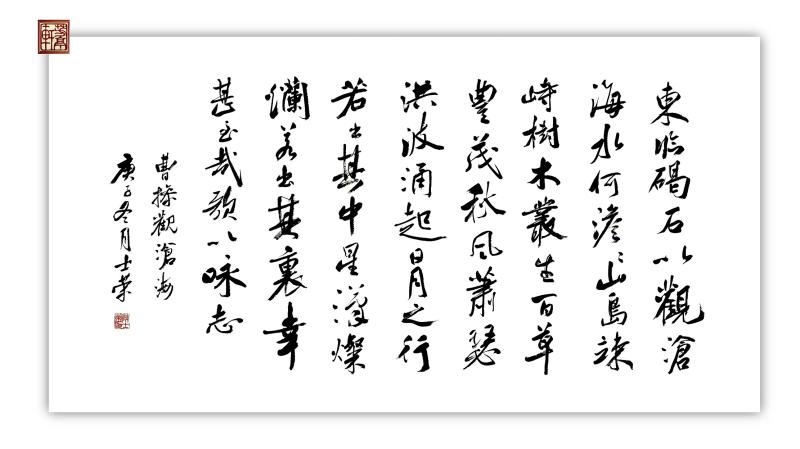 東臨碣石以觀滄
海水何澹澹山島竦
峙樹木叢生百草
豐茂秋風蕭瑟
洪波涌起日月之行
若出其中星漢燦
爛若出其裏幸
甚至哉歌以咏志
曹操觀滄海
庚子冬月士榮